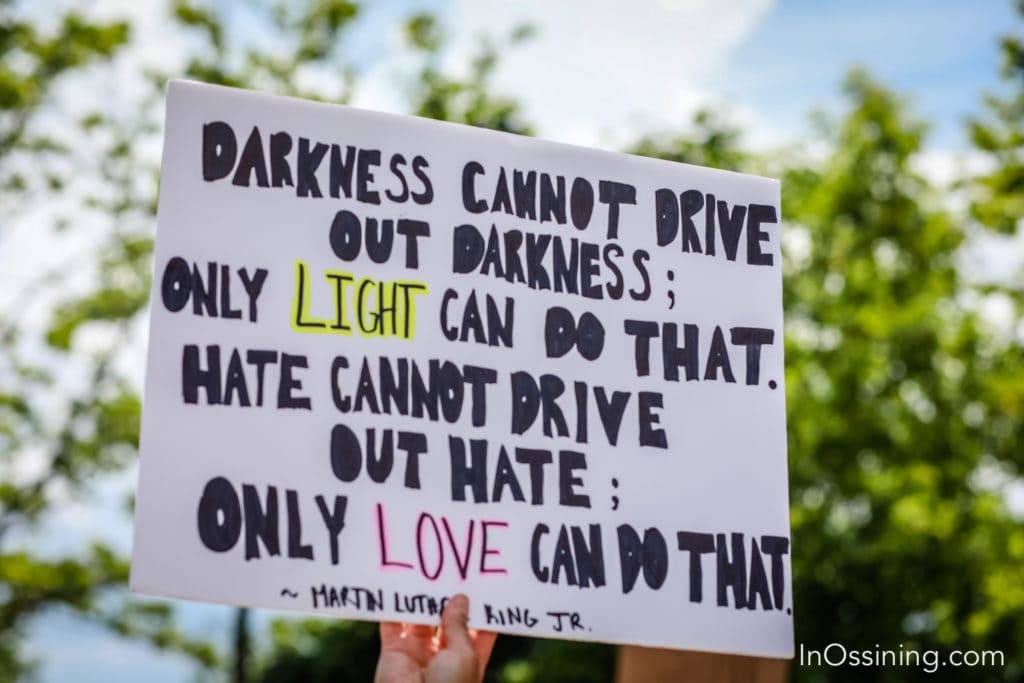 DARKNESS CANNOT DRIVE
OUT DARKNESS;
ONLY LIGHT CAN DO THAT.
HATE CANNOT DRIVE
OUT HATE;
ONLY LOVE CAN DO THAT.
~ MARTIN LUTHER KING JR.
InOssining.com